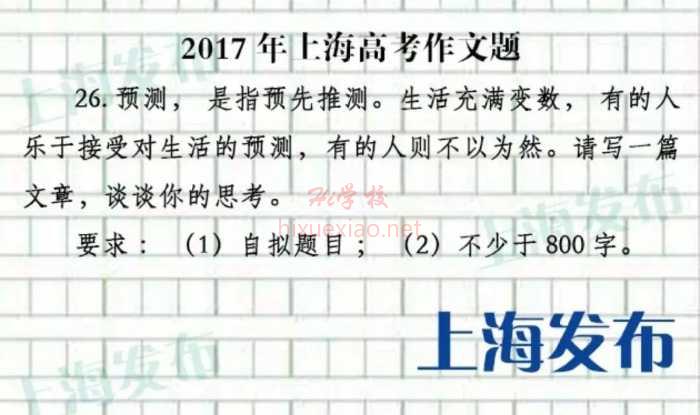 2017年上海高考作文题
26.预测，是指预先推测。生活充满变数，有的人
乐于接受对生活的预测，有的人则不以为然。请写一篇
文章，谈谈你的思考。
Hi学校
hixuexiao.net
要求：（1）自拟题目；（2）不少于800字。
上海发布
上海发布
上海发布
上海发布
上海发布